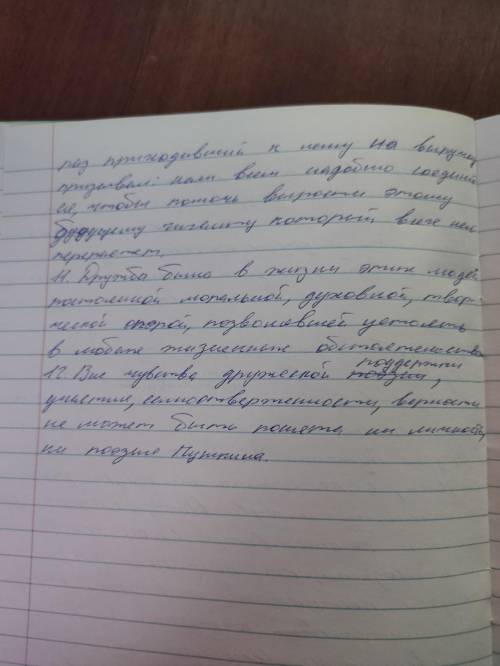 раз приходивший к нему на выручку,
призывал: нам всем надобно соединить
ся, чтобы помочь вырости этому
будущему гиганту который всех нас
перерастет.
11. Дружба была в жизни этих людей
постоянной моральной, духовной, твор
ческой опорой, позволявшей устоять
в любых жизненных обстоятельствах
12. Вне чувства дружеской поддержки,
участия, самоотверженности, верности
не может быть понята ни личность,
ни поэзия Пушкина.